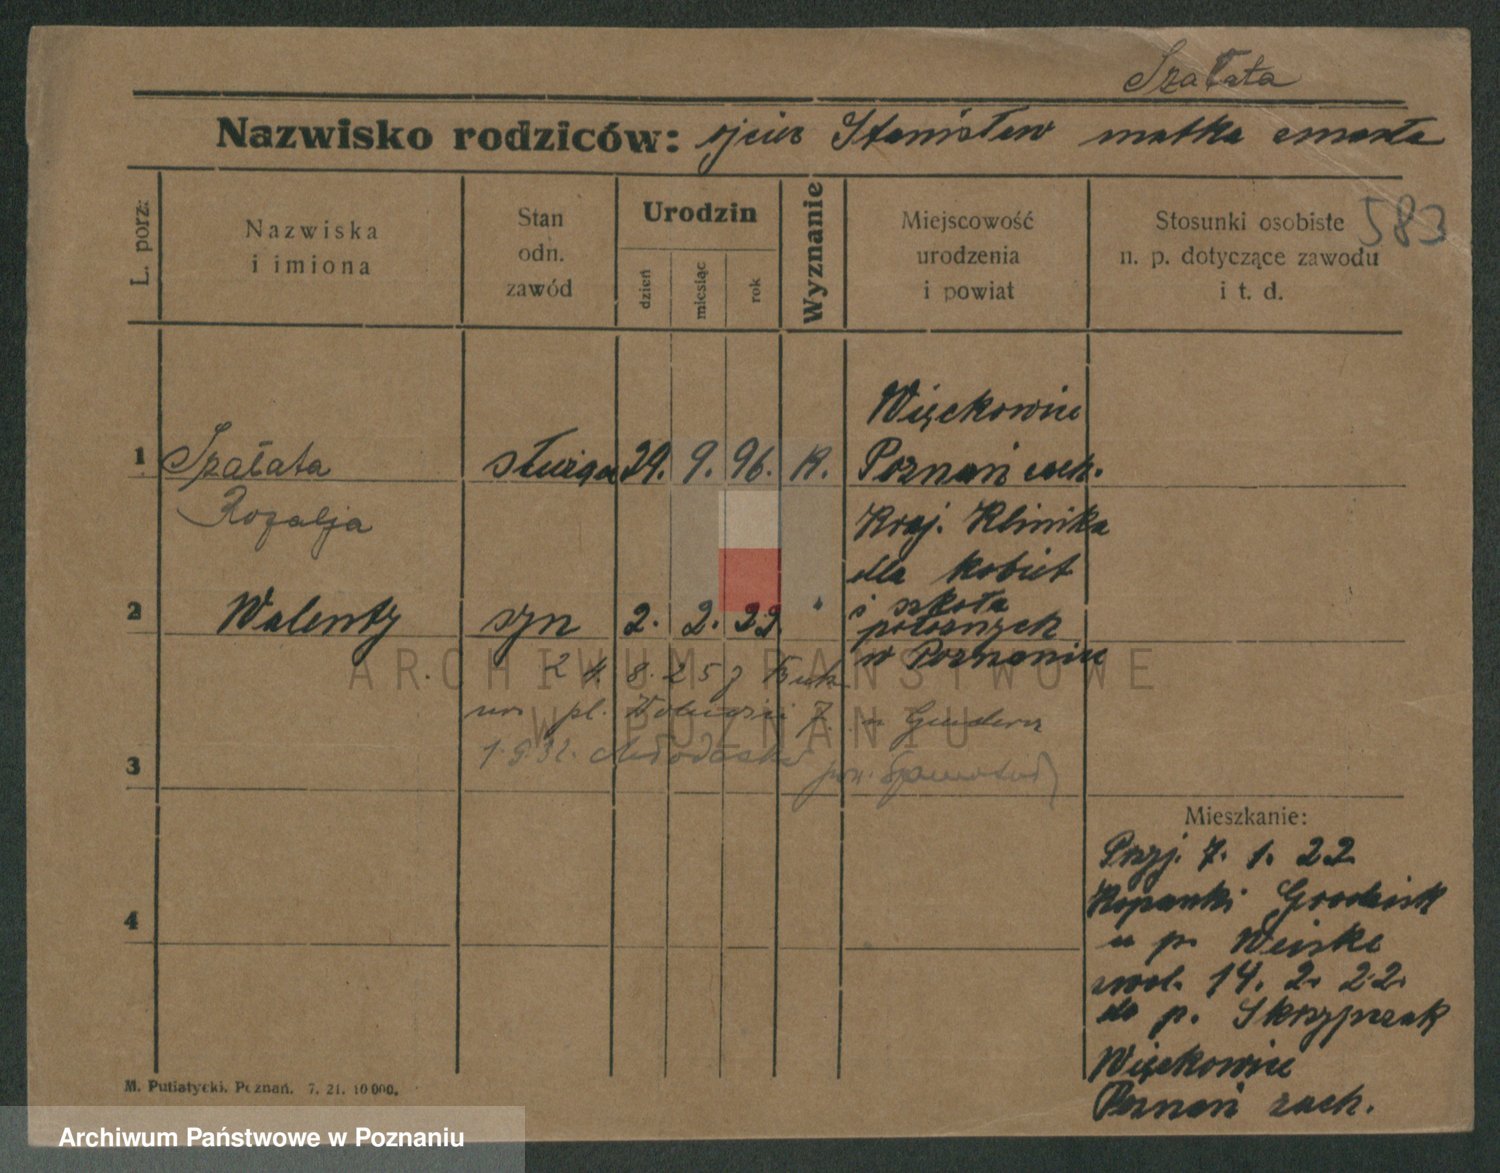 Szałata
Nazwisko rodziców: ojciec Stanisław matka zmarła
583
L. porz.
Nazwiska
i imiona
Stan
odn.
zawód
Urodzin
dzień
miesiąc
rok
Wyznanie
Miejscowość
urodzenia
i powiat
Stosunki osobiste
n. p. dotyczące zawodu
i t. d.
1
Szałata
Rozalja
służąca
29. 9. 96. K.
Więckowice
Poznań zach.
2
Walenty
syn
2. 2. 22. "
Kraj. Klinika
dla kobiet
i szkoła
położnych
w Poznaniu
24. 8. 25
pl.
7.
3
1. 9. 32.
4
Mieszkanie:
Przyj. 7. 1. 22
Kopanki Grodzisk
u p. Weiske
zwol. 14. 2. 22.
do p. Skrzypczak
Więckowice
Poznań zach.
M. Putiatycki, Poznań. 7. 21. 10 000.
ARCHIWUM PAŃSTWOWE
W POZNANIU
Archiwum Państwowe w Poznaniu